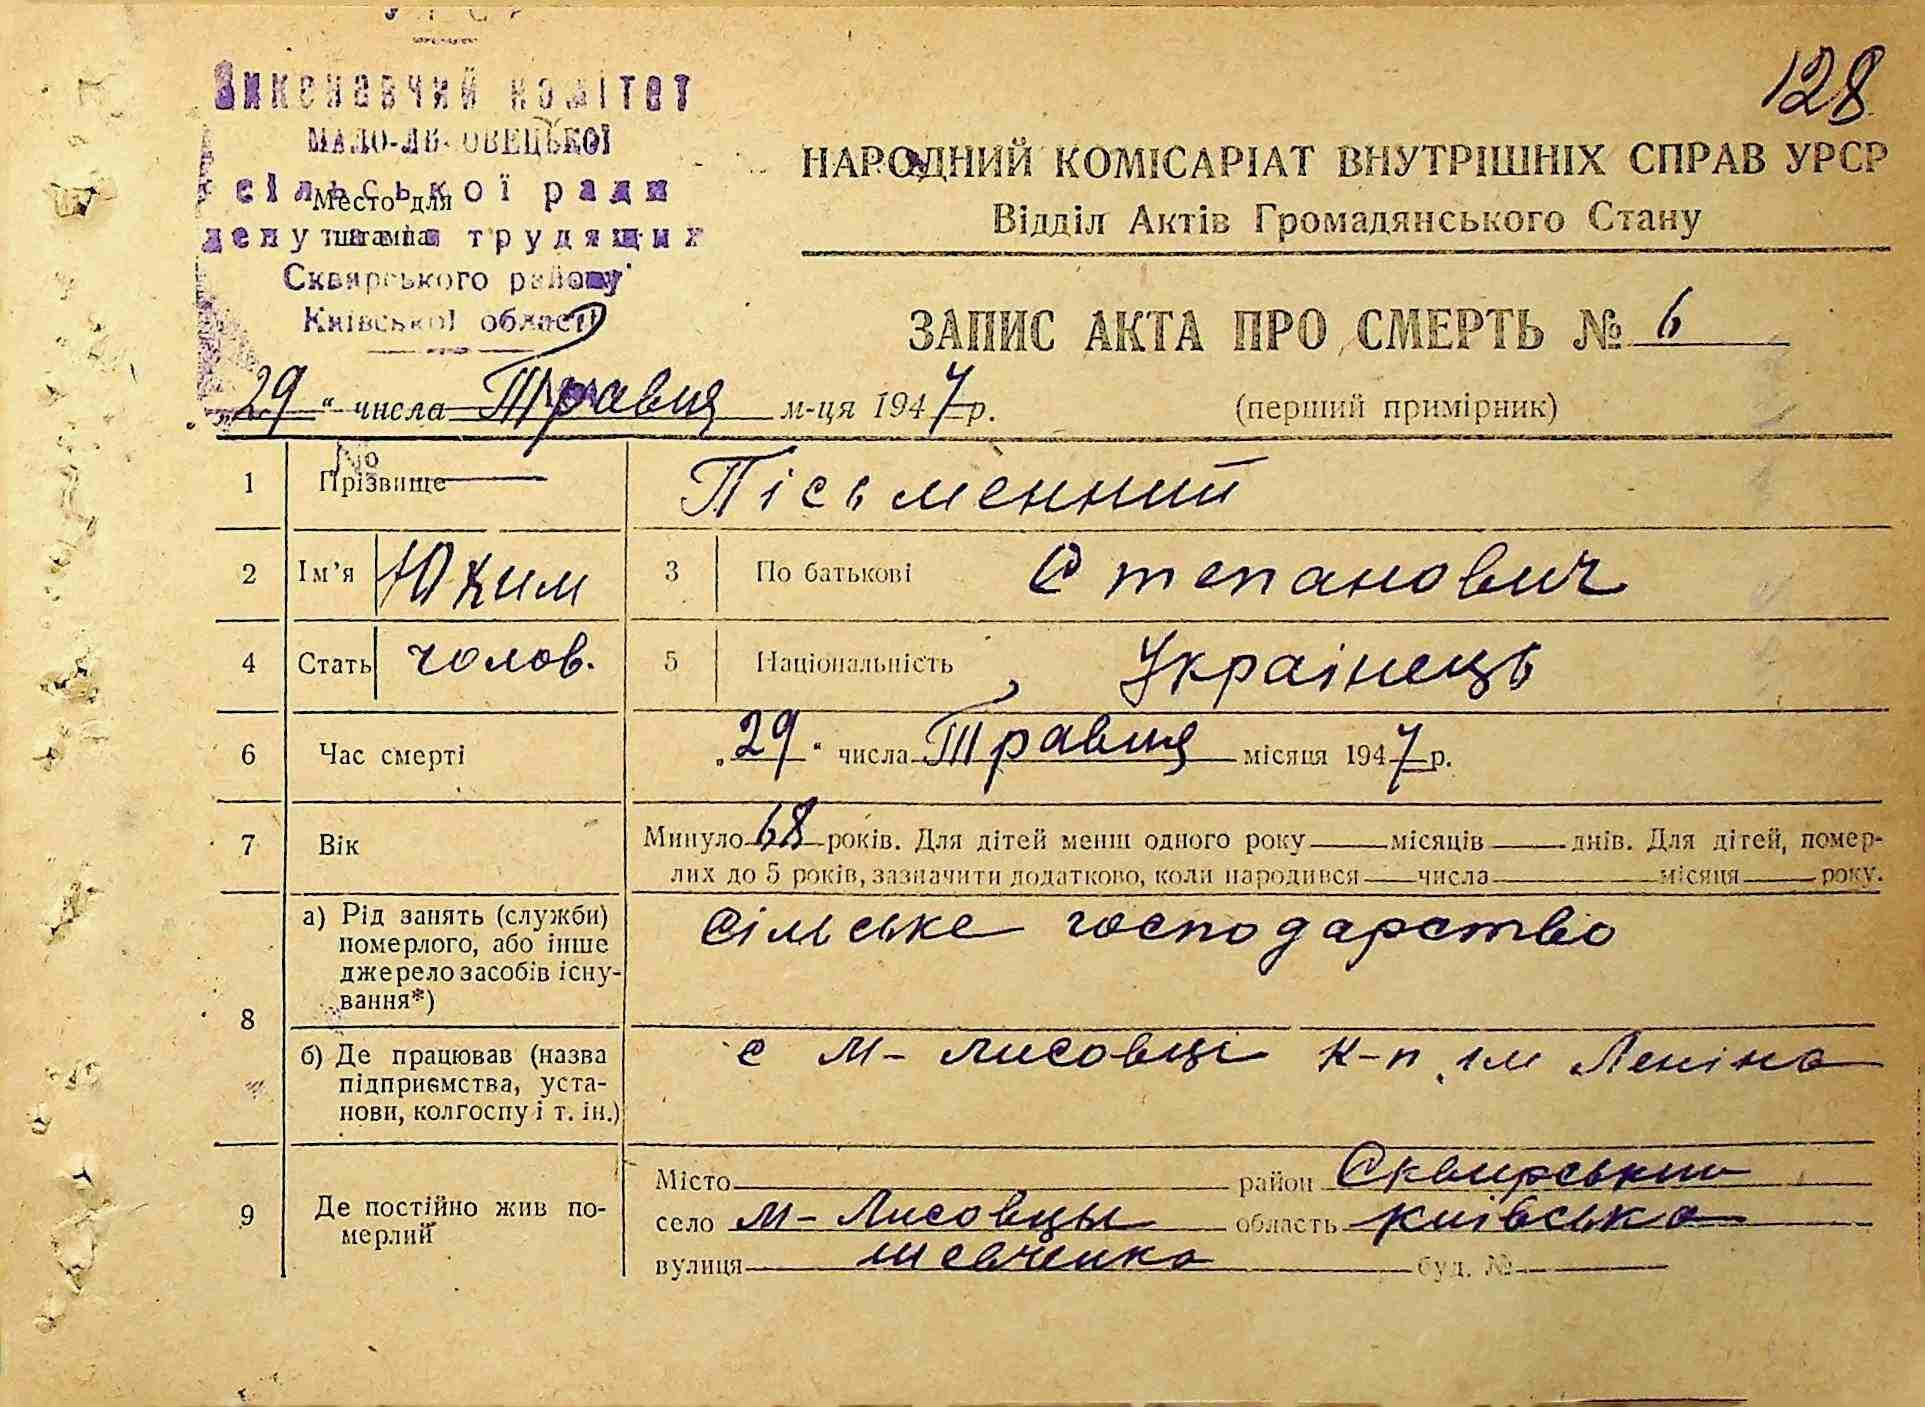 УРСР
Виконавчий комітет
МАЛО-ЛИСОВЕЦЬКОЇ
сільської ради
депутатів трудящих
Сквирського району
Київської області
Место для
штампа
128
НАРОДНИЙ КОМІСАРІАТ ВНУТРІШНІХ СПРАВ УРСР
Відділ Актів Громадянського Стану
ЗАПИС АКТА ПРО СМЕРТЬ № 6
„29“ числа Травня м-ця 1947 р.
(перший примірник)
№
1 Прізвище Пісьменний
2 Ім’я Юхим 3 По батькові Степанович
4 Стать чолов. 5 Національність Українець
6 Час смерті „29“ числа Травня місяця 1947 р.
7 Вік Минуло 68 років. Для дітей менш одного року місяців днів. Для дітей, помер-
лих до 5 років, зазначити додатково, коли народився числа місяця року.
8 а) Рід занять (служби)
померлого, або інше
джерело засобів існу-
вання*)
сільське господарство
б) Де працював (назва
підприємства, уста-
нови, колгоспу і т. ін.)
с М- Лисовці К-п ім Леніна
9 Де постійно жив по-
мерлий
Місто район Сквирський
село М- Лисовцы область Київська
вулиця Шевченка буд. №